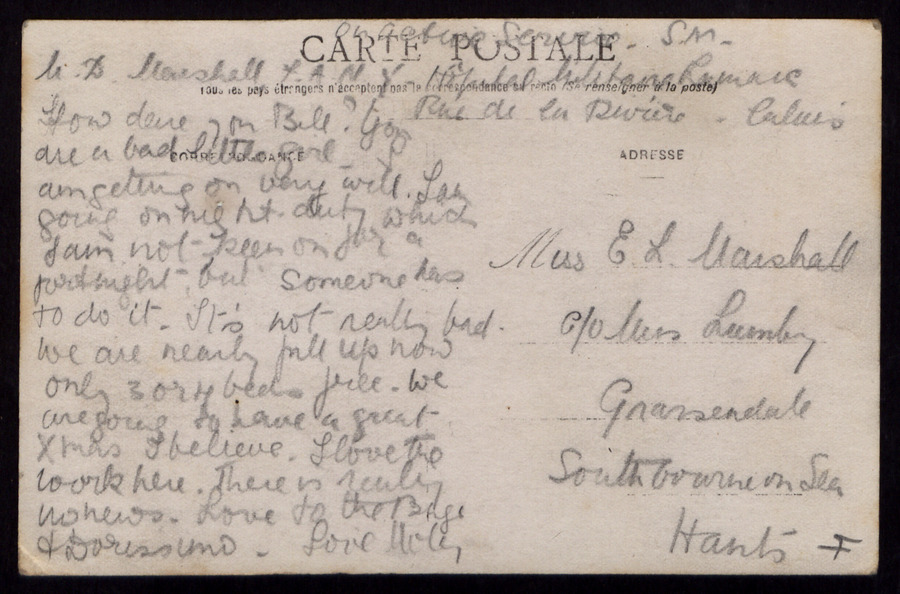 On Active Service. S.M.
CARTE POSTALE
M. D. Marshall F.A.N.Y. Hôpital Militaire Lamarck
Tous les pays étrangers n'acceptent pas la correspondance au recto (Se renseigner à la poste)
Rue de la Rivière - Calais
How dare you Bill? You
are a bad little girl. I
CORRESPONDANCE
ADRESSE
am getting on very well. I am
going on night duty which
I am not keen on for a
fortnight, but someone has
to do it. It's not really bad.
We are nearly full up now
only 3 or 4 beds free. We
are going to have a great
Xmas I believe. I love the
work here. There is really
no news. Love to the
& . Love
Miss E L Marshall
c/o Miss Lumby
Grassendale
Southbourne on Sea
Hants